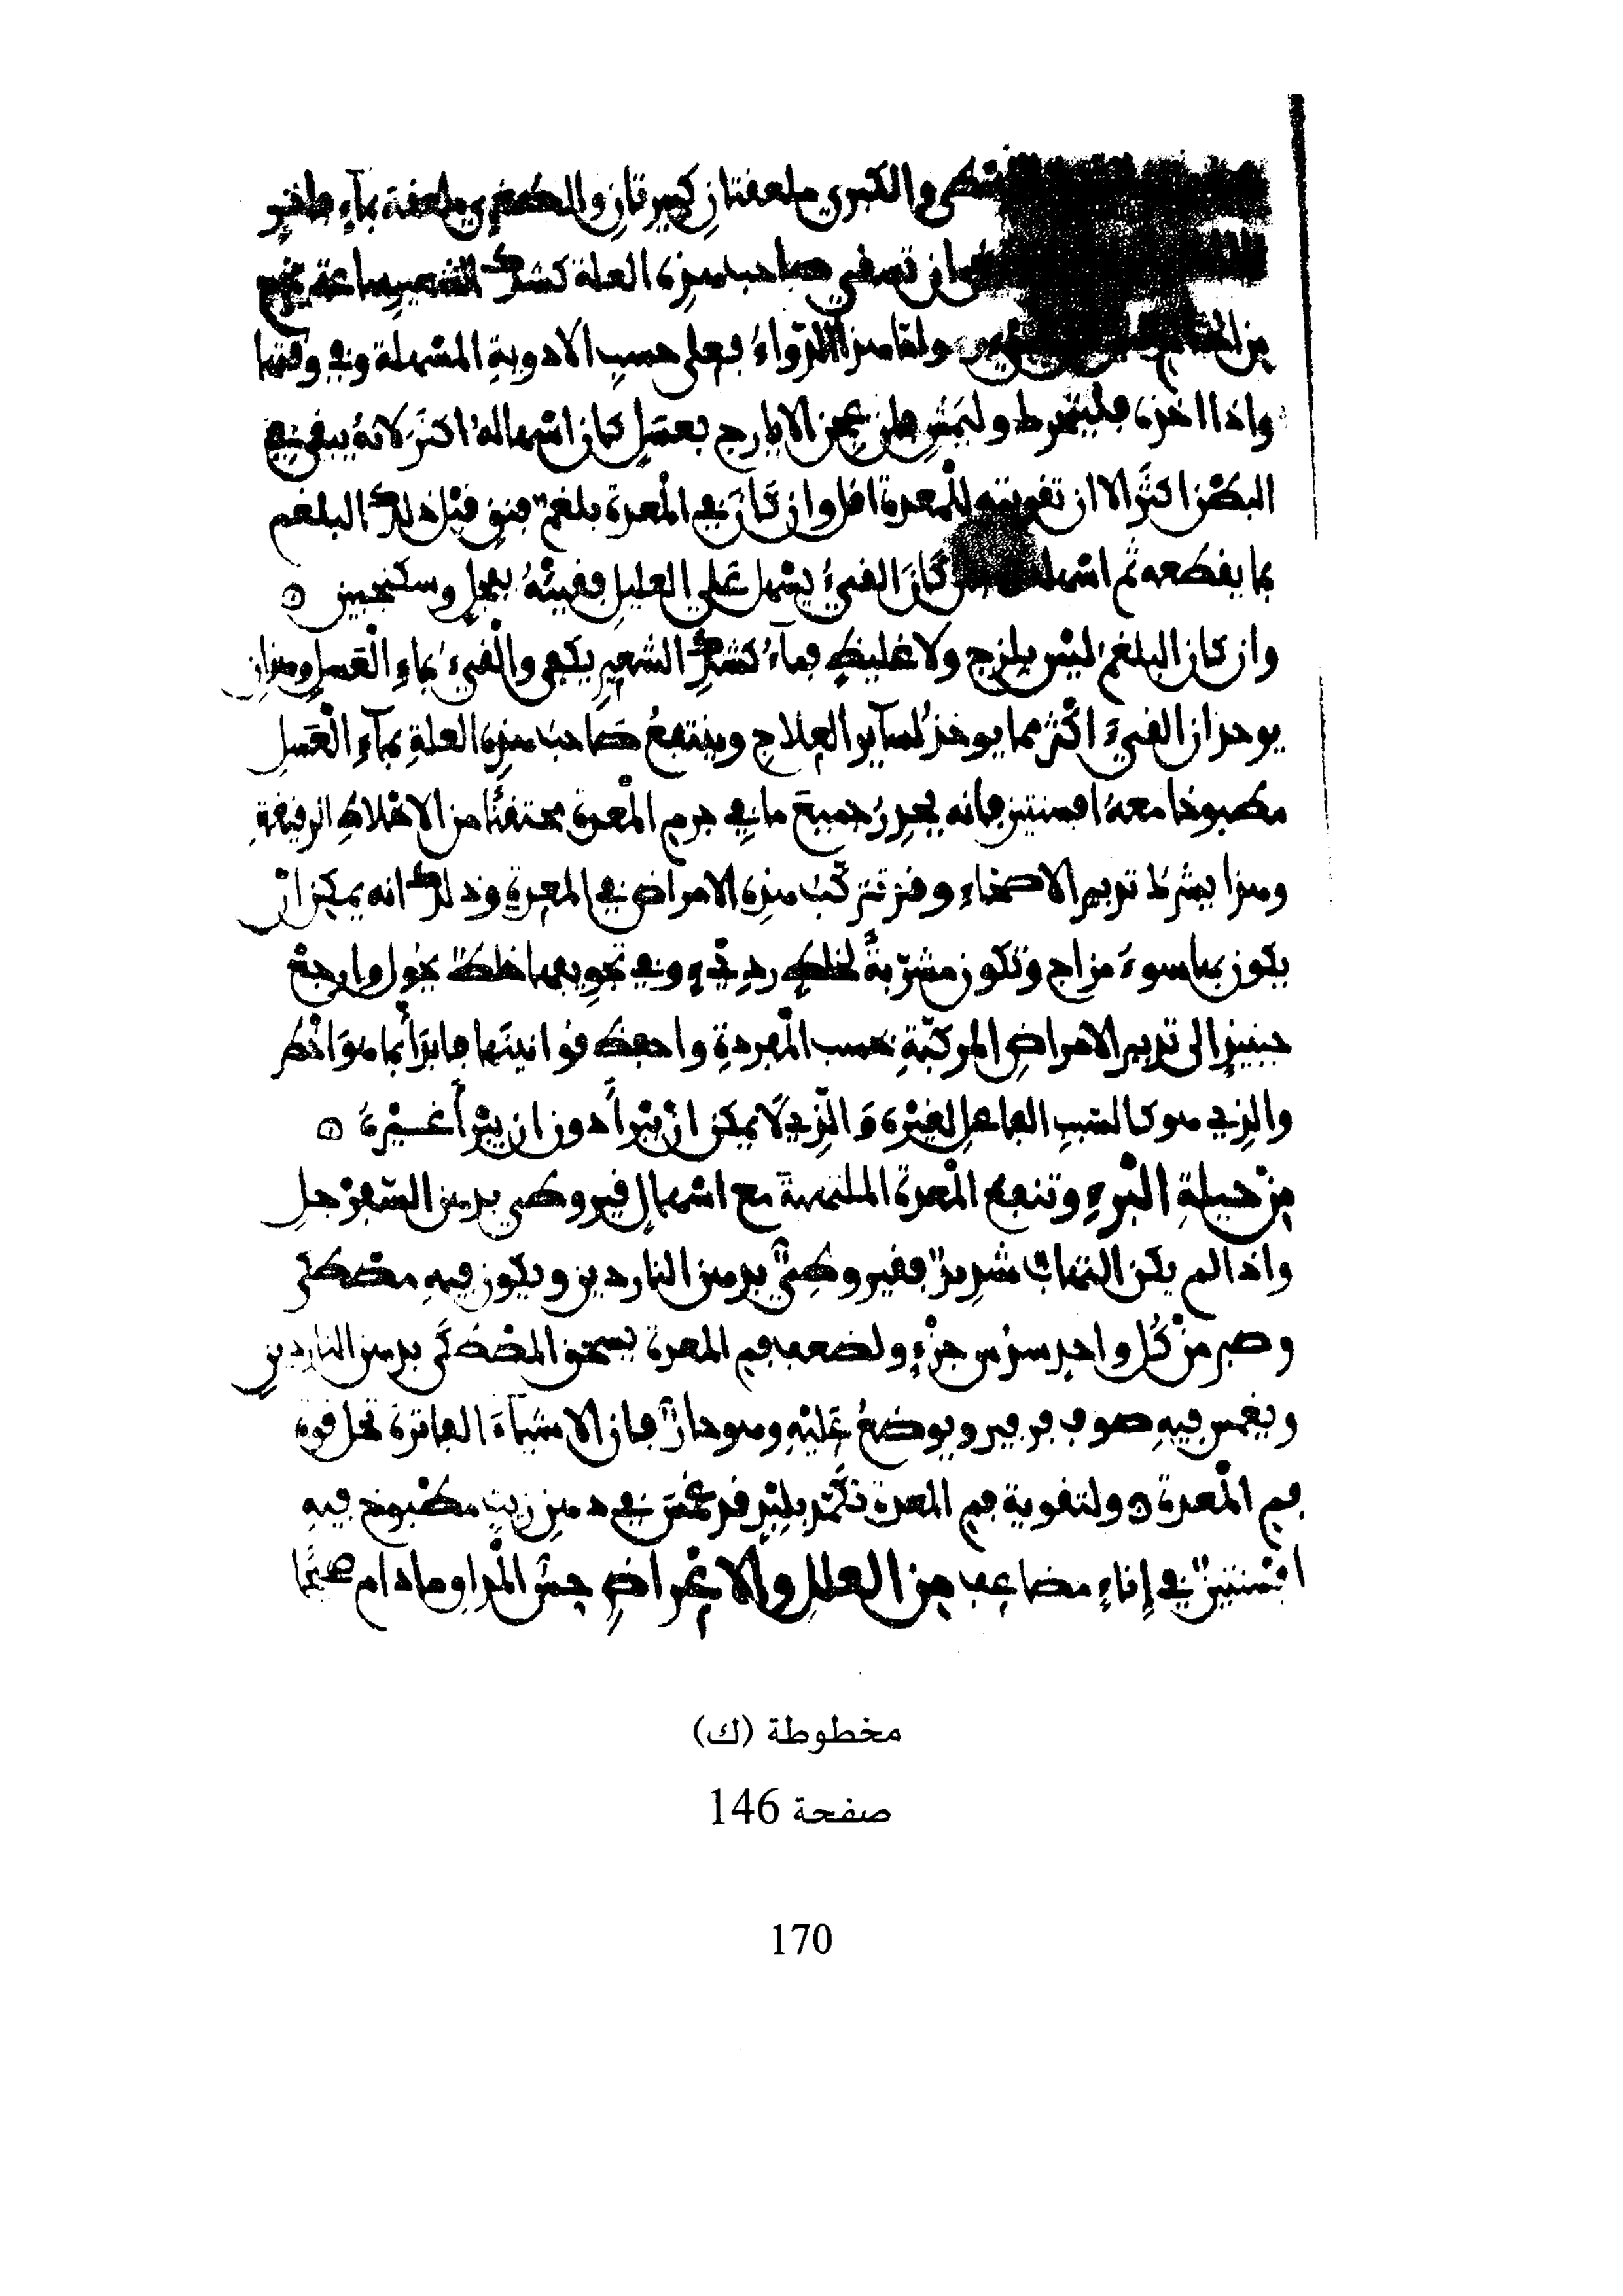 والكبرى ملعقتان كبيرتان والصغرى ملعقة بماء فاتر
وان تسقي صاحب هذه العلة كشك الشعير ساعة يخرج
من الحمام واما هذا الدواء فعلى حسب الادوية المسهلة وفي وقتها
واذا اخذه وليمش فان عجن الايارج بعسل كان اسهاله اكثر لانه يبقى في
البطن اكثر الا ان تقويته للمعدة اقل وان كان في المعدة بلغم فنق قبل ذلك البلغم
بما يقطعه ثم اسهله كان القيء يسهل على العليل فقيئه بفجل وسكنجبين
وان كان البلغم ليس بلزج ولا غليظ فماء كشك الشعير يكفي والقيء بماء العسل وهذان
يوخذان القيء اكثر مما يوخذ لساير العلاج وينتفع صاحب هذه العلة بماء العسل
مطبوخا معه افسنتين فانه يحدر جميع ما في جرم المعدة محتقنا من الاخلاط الرقيقة
وهذا بشرط تدبير الاصحاء وقد تتركب هذه الامراض في المعدة وذلك انه يمكن ان
يكون بها سوء مزاج وتكون مشربة لخلط رديء وفي تجويفها خلط يجول وارجع
حينيذ الى تدبير الامراض المركبة بحسب المفردة واحفظ قوانينها فابدا بما هو اخطر
والذي هو كالسبب الفاعل لغيره والذي لا يمكن ان يبرا دون ان يبرا غيره
من حيلة البرء وتنفع المعدة الملتهبة مع اسهال قيروطي بدهن السفرجل
واذا لم يكن التهاب شديد فقيروطي بدهن الناردين ويكون فيه مصطكى
وصبر من كل واحد سدس جزء ولضعف فم المعدة يسحق المصطكى بدهن الناردين
ويغمس فيه صوف فرفير ويوضع عليه وهو حار فان الاشياء الفاترة تحل قوة
فم المعدة ولتقوية فم المعدة تكمد بلبد قد غمس في دهن زيت مطبوخ فيه
افسنتين في اناء مضاعف من العلل والاعراض حس المداوما دام صحيحا
مخطوطة (ك)
صفحة 146
170